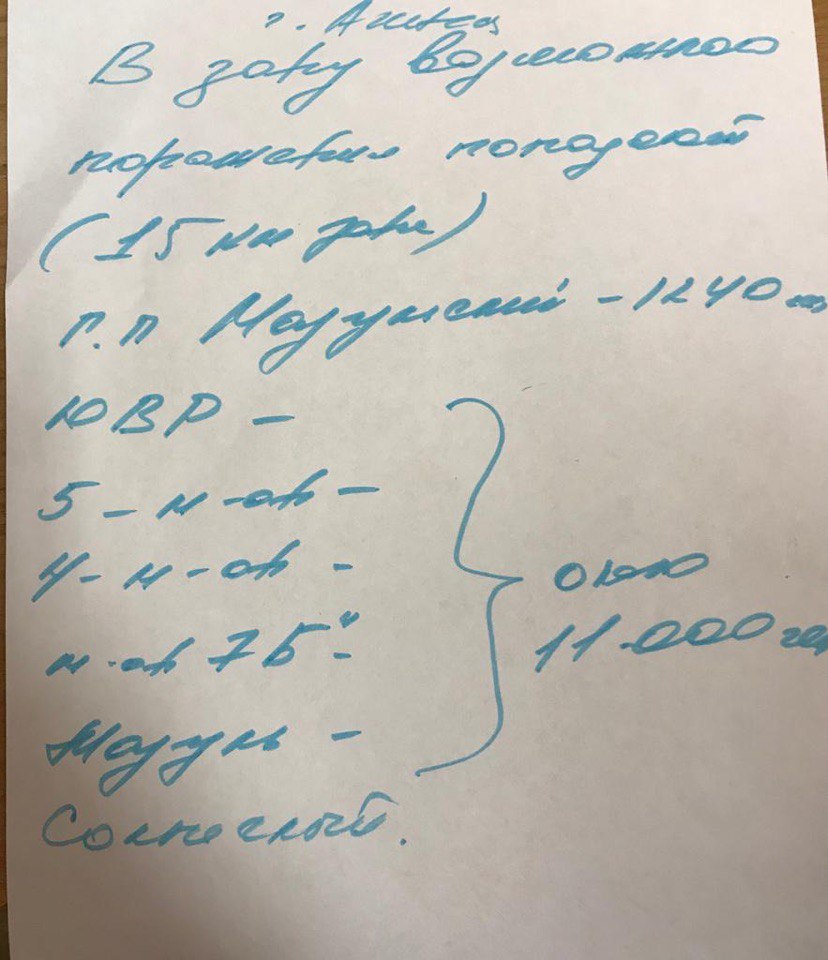 г. Ачинск
В зону возможного
поражения попадают
(15 км зона)
п.п Мазульский - 1240 чел
ЮВР -
5 - м-он -
4 - м-он -
м-он 7Б" -
Мазуль -
Солнечный.
около
11.000 чел